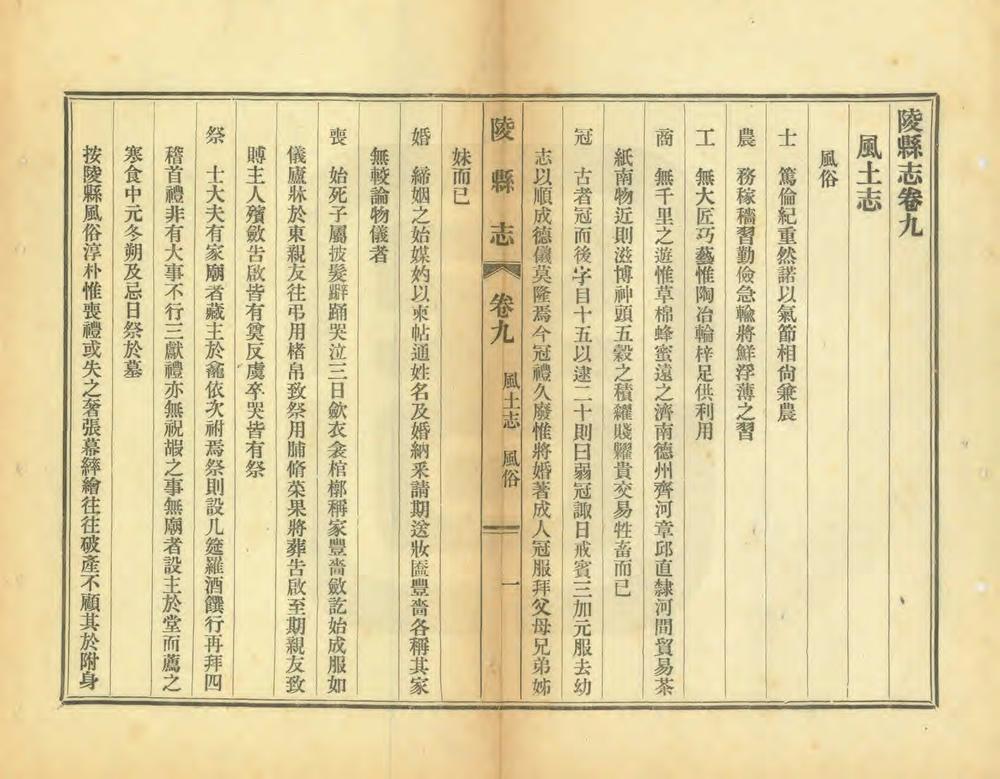 陵縣志卷九
風土志
風俗
士　篤倫紀重然諾以氣節相尙兼農
農　務稼穡習勤儉急輸將鮮浮薄之習
工　無大匠巧藝惟陶冶輪梓足供利用
商　無千里之遊惟草棉蜂蜜遠之濟南德州齊河章邱直隸河間貿易茶
紙南物近則滋博神頭五穀之積糴賤糶貴交易牲畜而已
冠　古者冠而後字目十五以逮二十則曰弱冠諏日戒賓三加元服去幼
志以順成德儀莫隆焉今冠禮久廢惟將婚著成人冠服拜父母兄弟姊
陵縣志　卷九　風土志　風俗　一
妹而已
婚　締姻之始媒妁以柬帖通姓名及婚納釆請期送妝匳豐嗇各稱其家
無較論物儀者
喪　始死子屬披髮躃踊哭泣三日歛衣衾棺槨稱家豐嗇斂訖始成服如
儀廬牀於東親友往弔用楮帛致祭用脯脩菜果將葬吿啟至期親友致
賻主人殯斂吿啟皆有奠反虞卒哭皆有祭
祭　士大夫有家廟者藏主於龕依次祔焉祭則設几筵羅酒饌行再拜四
稽首禮非有大事不行三獻禮亦無祝嘏之事無廟者設主於堂而薦之
寒食中元冬朔及忌日祭於墓
按陵縣風俗淳朴惟喪禮或失之奢張幕繂繪往往破產不顧其於附身